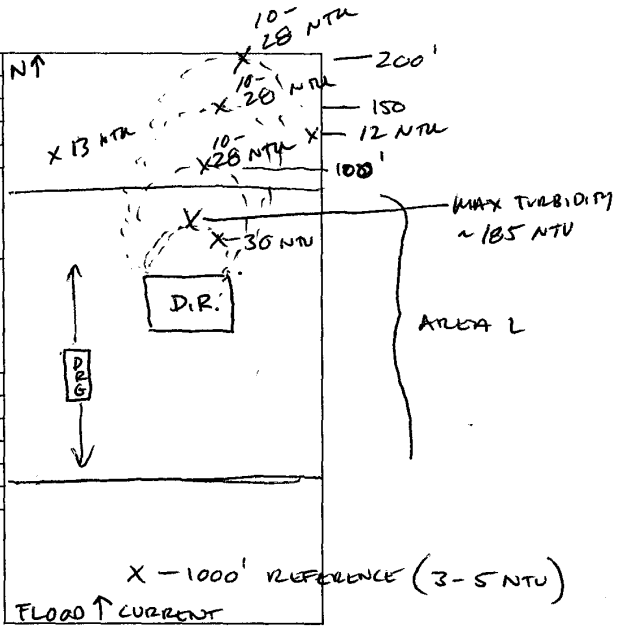 10-
28 NTU
N↑
200'
10-
28 NTU
150
12 NTU
X 13 NTU
10-
28 NTU
100'
MAX TURBIDITY
~ 185 NTU
30 NTU
D.R.
AREA L
DRG
X - 1000' REFERENCE (3-5 NTU)
FLOAD ↑ CURRENT